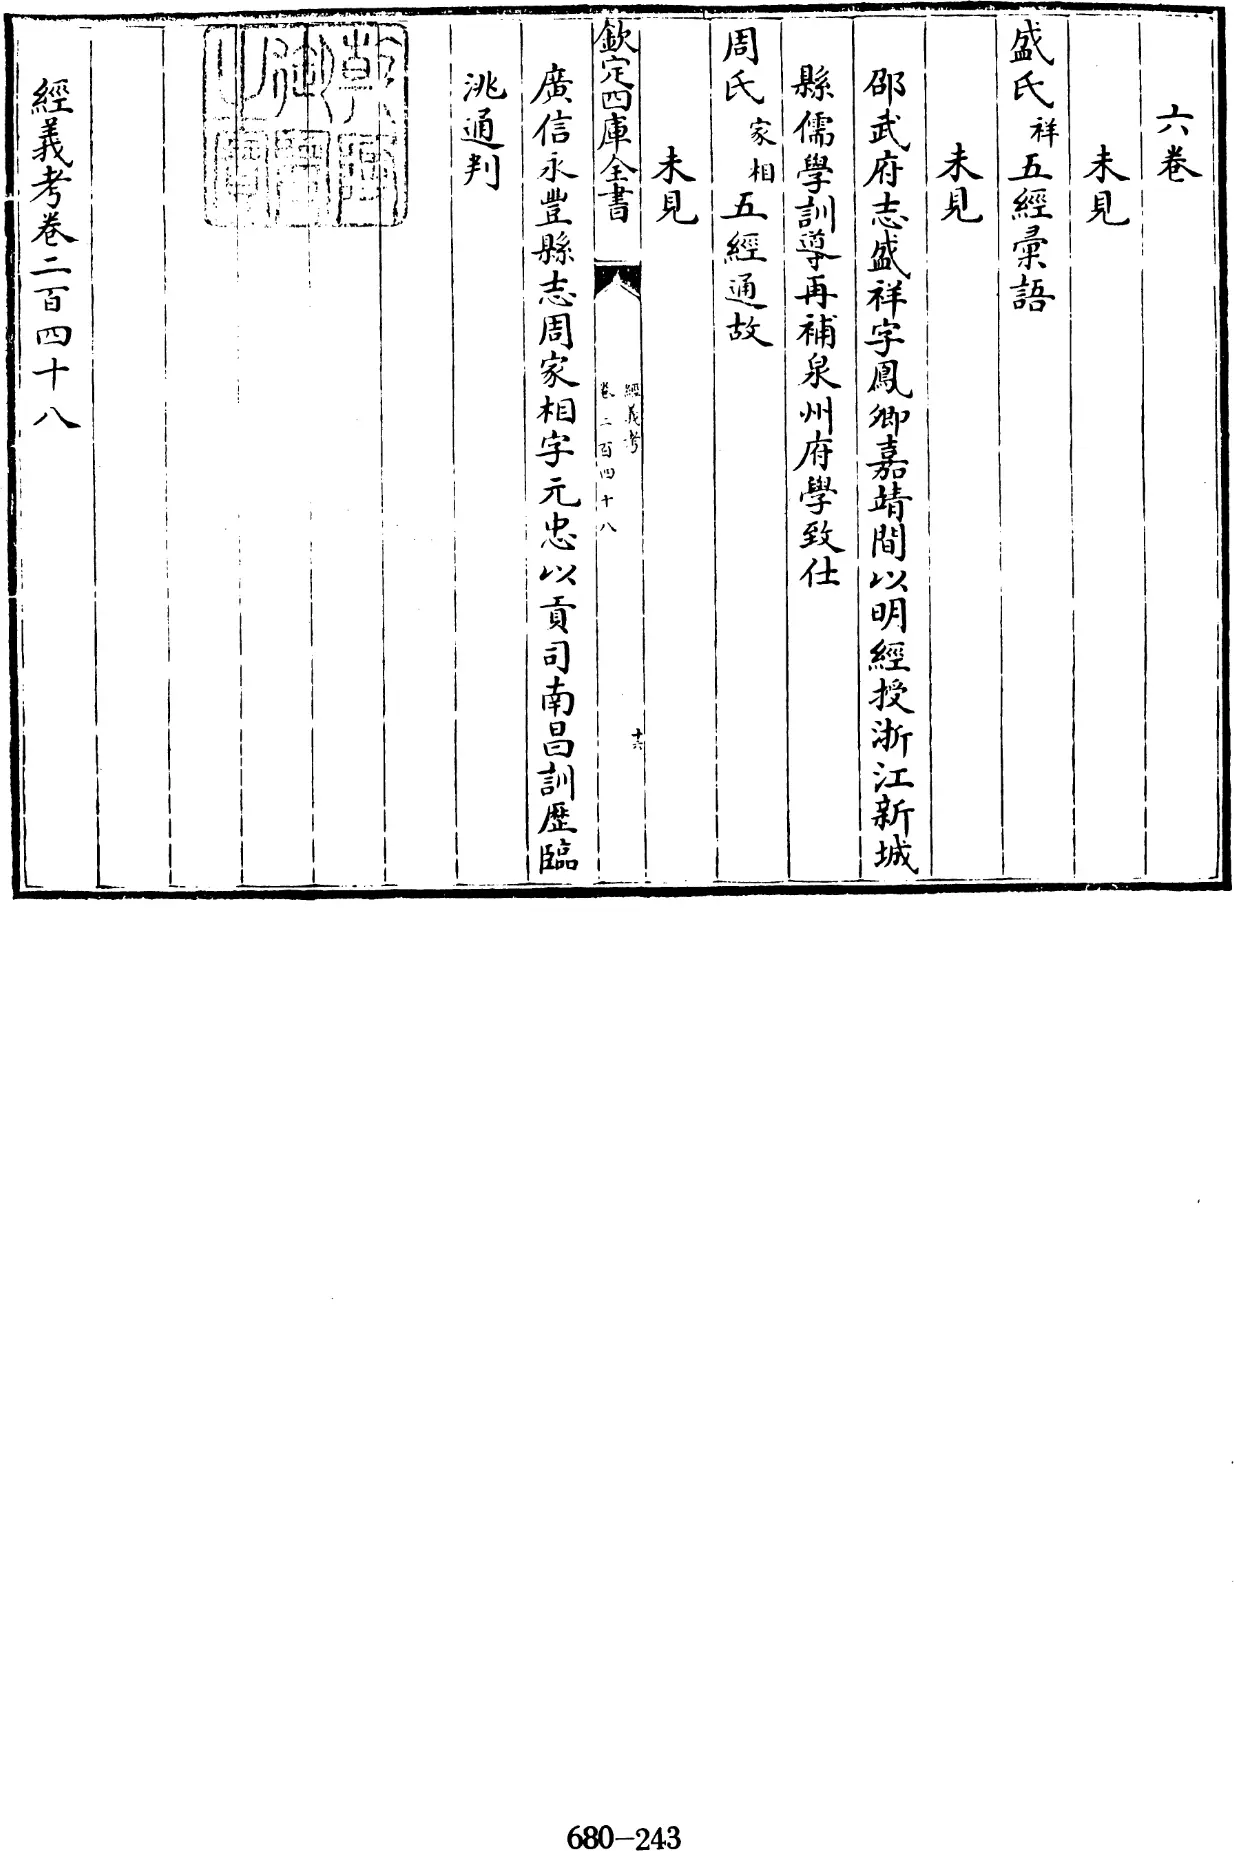 六卷
未見
盛氏祥五經彙語
未見
邵武府志盛祥字鳳卿嘉靖間以明經授浙江新城
縣儒學訓導再補泉州府學致仕
周氏家相五經通故
未見
欽定四庫全書
經義考
卷二百四十八
十六
廣信永豐縣志周家相字元忠以貢司南昌訓歷臨
洮通判
經義考卷二百四十八
680-243